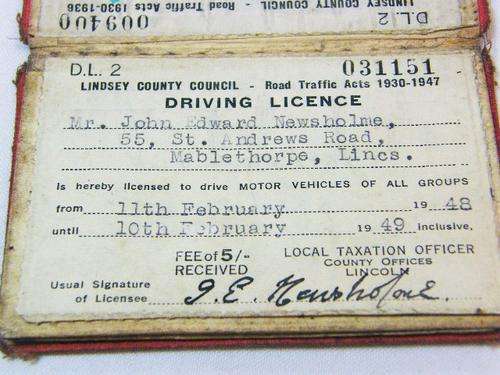 009400
LINDSEY COUNTY COUNCIL - Road Traffic Acts 1930-1936
D.L.2
D.L. 2
031151
LINDSEY COUNTY COUNCIL - Road Traffic Acts 1930-1947
DRIVING LICENCE
Mr. John Edward Newsholme,
55, St. Andrews Road,
Mablethorpe, Lincs.
is hereby licensed to drive MOTOR VEHICLES OF ALL GROUPS
from 11th February 19 48
until 10th February 19 49 inclusive.
FEE of 5/- RECEIVED
LOCAL TAXATION OFFICER
COUNTY OFFICES
LINCOLN
Usual Signature of Licensee J.E. Newsholme.